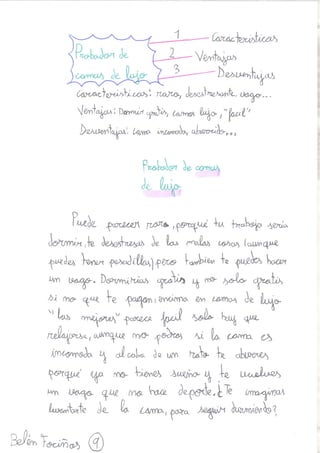 1 Características
Probador de 2 Ventajas
camas de lujo 3 Desventajas
Características: raro, desestresante, vago...
Ventajas: Dormir gratis, camas lujo, "facil"
Desventajas: Cama incomoda, aburrido,..
Probador de camas
de lujo
Puede parecer raro, porque tu trabajo seria
dormir, te desestresas de las malas cosas (aunque
puedes tener pesadillas) pero tambien te puedes hacer
un vago. Dormirias gratis y no solo gratis,
si no que te pagan; encima en camas de lujo
"las mejores" parece facil solo hay que
relajarse, aunque no podras si la cama es
incomoda y al cabo de un rato te aburres
porque ya no tienes sueño y te vuelves
un vago que no hace deporte. ¿Te imaginas
levantarte de la cama, para seguir durmiendo?
Belén Fociños 9